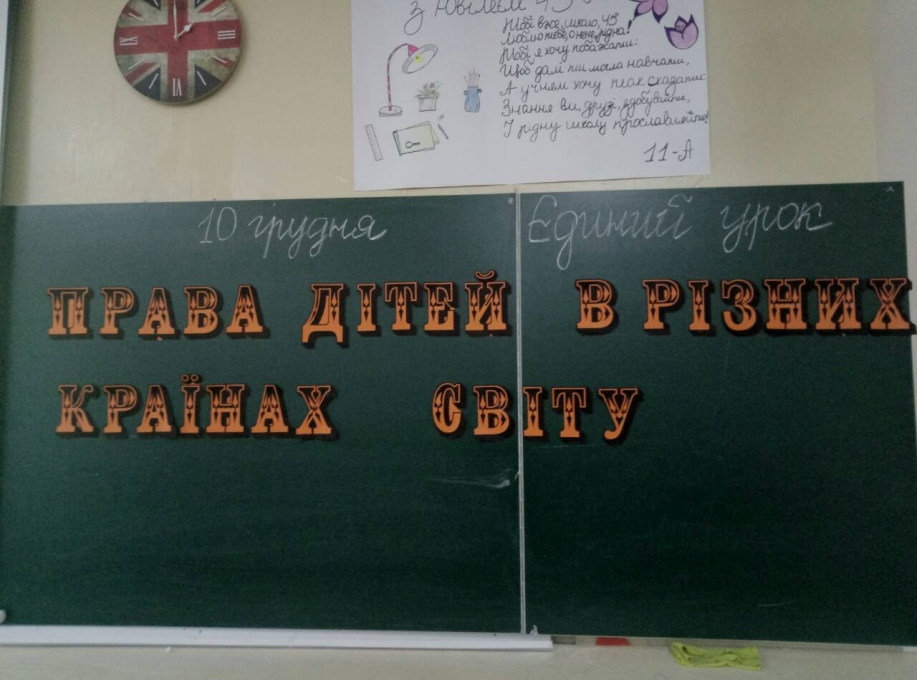 З Ювілеєм 45
Тобі вже, школо, 45
Люблю тебе, о нене, рідна!
Тобі я хочу побажати:
Щоб далі ти могла навчати,
А учням хочу так сказати:
Знання ви, друзі, здобувайте,
І рідну школу прославляйте!
11-А
10 грудня Єдиний урок
ПРАВА ДІТЕЙ В РІЗНИХ
КРАЇНАХ СВІТУ